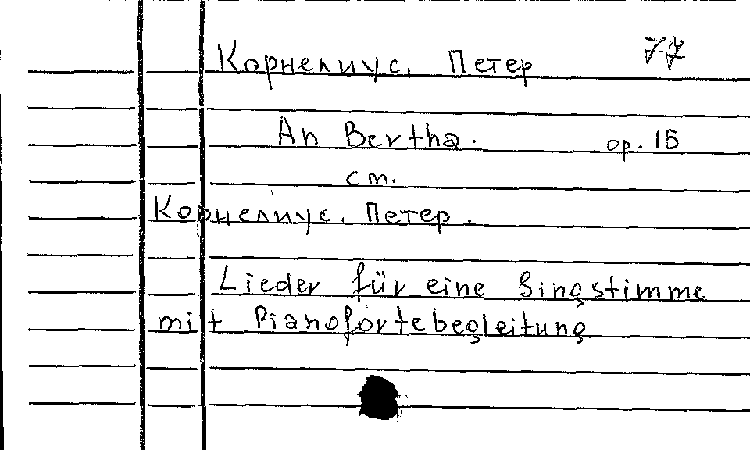 Корнелиус, Петер 77
An Bertha. op. 15
см.
Корнелиус, Петер.
Lieder für eine Singstimme
mit Pianofortebegleitung